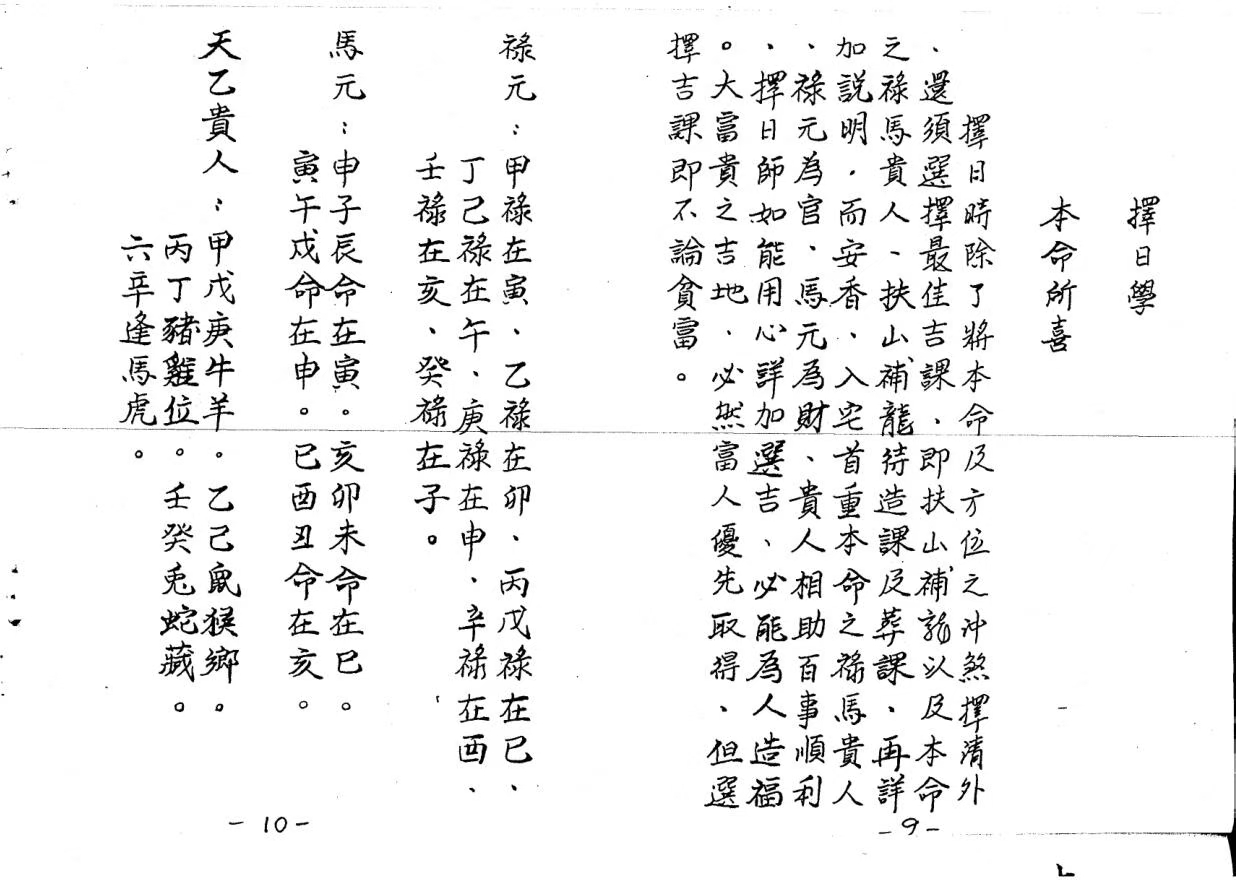 擇日學
本命所喜
擇日時除了將本命及方位之沖煞擇清外
、還須選擇最佳吉課、即扶山補龍以及本命
之祿馬貴人、扶山補龍待造課及葬課、再詳
加說明．而安香、入宅首重本命之祿馬貴人
、祿元為官、馬元為財、貴人相助百事順利
、擇日師如能用心詳加選吉、必能為人造福
。大富貴之吉地、必然富人優先取得、但選
擇吉課即不論貧富。
-9-
祿元：甲祿在寅、乙祿在卯、丙戊祿在巳、
丁己祿在午、庚祿在申、辛祿在酉、
壬祿在亥、癸祿在子。
馬元：申子辰命在寅。亥卯未命在巳。
寅午戌命在申。巳酉丑命在亥。
天乙貴人：甲戊庚牛羊。乙己鼠猴鄉。
丙丁豬雞位。壬癸兎蛇藏。
六辛逢馬虎。
-10-